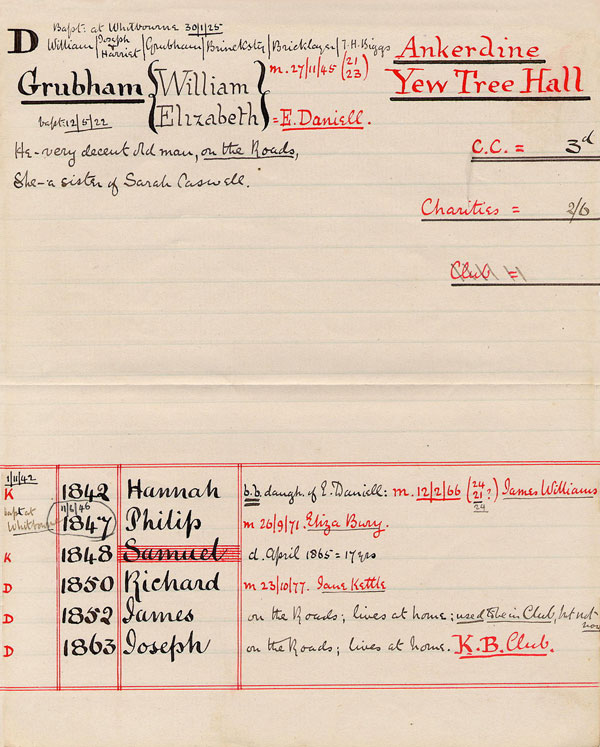 D Bapt: at Whitbourne 30/1/25
William | Joseph Harriet | Grubham | Brincksty | Bricklayer | T. H. Biggs
Ankerdine
Yew Tree Hall
Grubham { William Elizabeth } m. 27/11/45 (21 23)
= E. Daniell.
bapt: 12/5/22
He - very decent old man, on the Roads,
She - a sister of Sarah Caswell.
C.C. = 3d
Charities = 2/6
Club =
1/11/42
K 1842 Hannah b.b. daugh. of E. Daniell: m. 12/2/66 (24 21?) James Williams
24
bapt at Whitbourne 11/6/46 1847 Philip m 26/9/71 Eliza Bury.
K 1848 Samuel d. April 1865 = 17 yrs
D 1850 Richard m 23/10/77. Jane Kettle
D 1852 James on the Roads; lives at home; used to be in Club, but not now
D 1863 Joseph on the Roads; lives at home. K.B. Club.